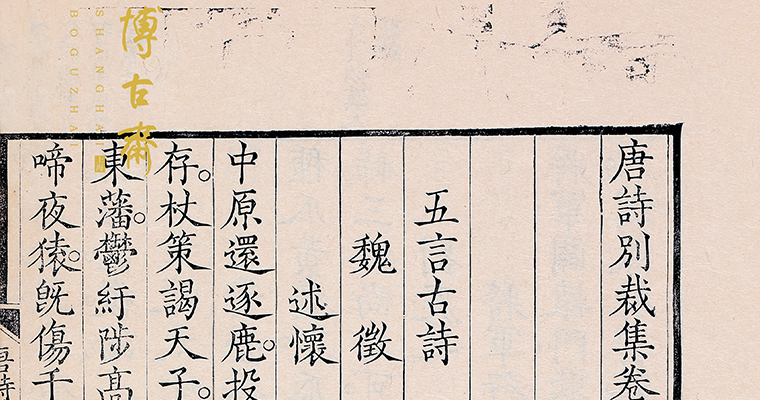 博古齋
SHANGHAI
BOGUZHAI
唐詩別裁集卷
五言古詩
魏徵
述懷
中原還逐鹿。投
存。杖策謁天子。
東藩。鬱紆陟高
啼夜猿。旣傷千